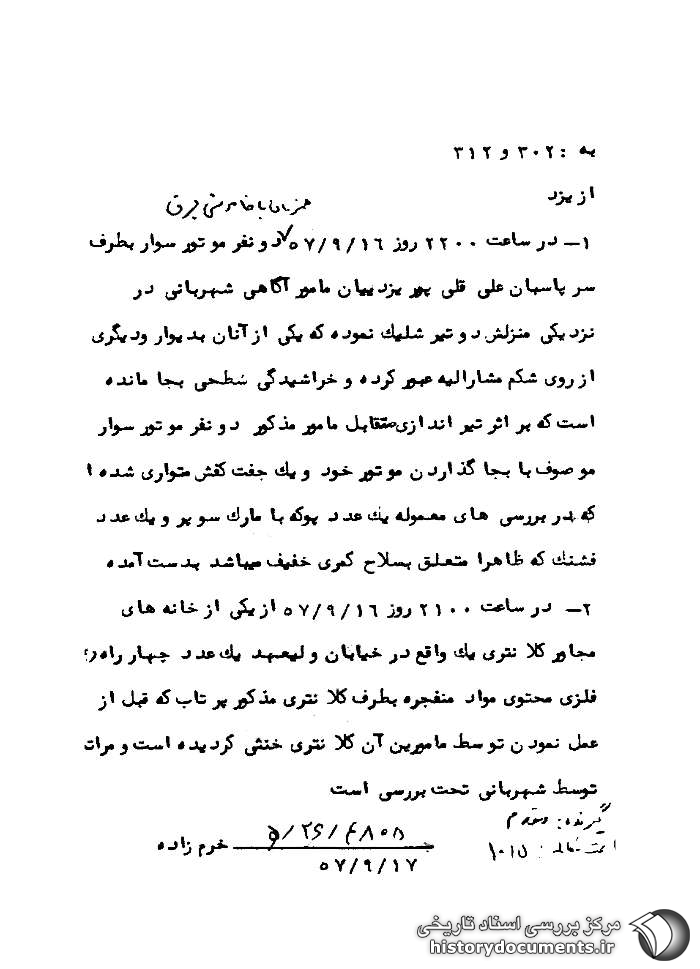 به : ۳۰۲ و ۳۱۲
از یزد
همزمان با خاموشی برق
۱– در ساعت ۲۲۰۰ روز ۵۷/۹/۱۶ دو نفر موتور سوار بطرف
سر پاسبان علی قلی پور یزدییان مامور آگاهی شهربانی در
نزدیکی منزلش دو تیر شلیك نموده که یکی از آنان بدیوار ودیگری
از روی شکم مشارالیه عبور کرده و خراشیدگی سطحی بجا مانده
است که بر اثر تیر اندازی متقابل مامور مذکور دو نفر موتور سوار
موصوف با بجا گذاردن موتور خود و یك جفت کفش متواری شده ا
که در بررسی های معموله یك عدد پوکه با مارك سوپر و یك عدد
فشنك که ظاهرا متعلق بسلاح کمری خفیف میباشد بدست آمده
۲– در ساعت ۲۱۰۰ روز ۵۷/۹/۱۶ از یکی از خانه های
مجاور کلانتری یك واقع در خیابان ولیعهد یك عدد چهار راه
فلزی محتوی مواد منفجره بطرف کلانتری مذکور پرتاب که قبل از
عمل نمودن توسط مامورین آن کلانتری خنثی گردیده است و مرات
توسط شهربانی تحت بررسی است
گیرنده:
خرم زاده
۵۷/۹/۱۷
مرکز بررسی اسناد تاریخی
historydocuments.ir